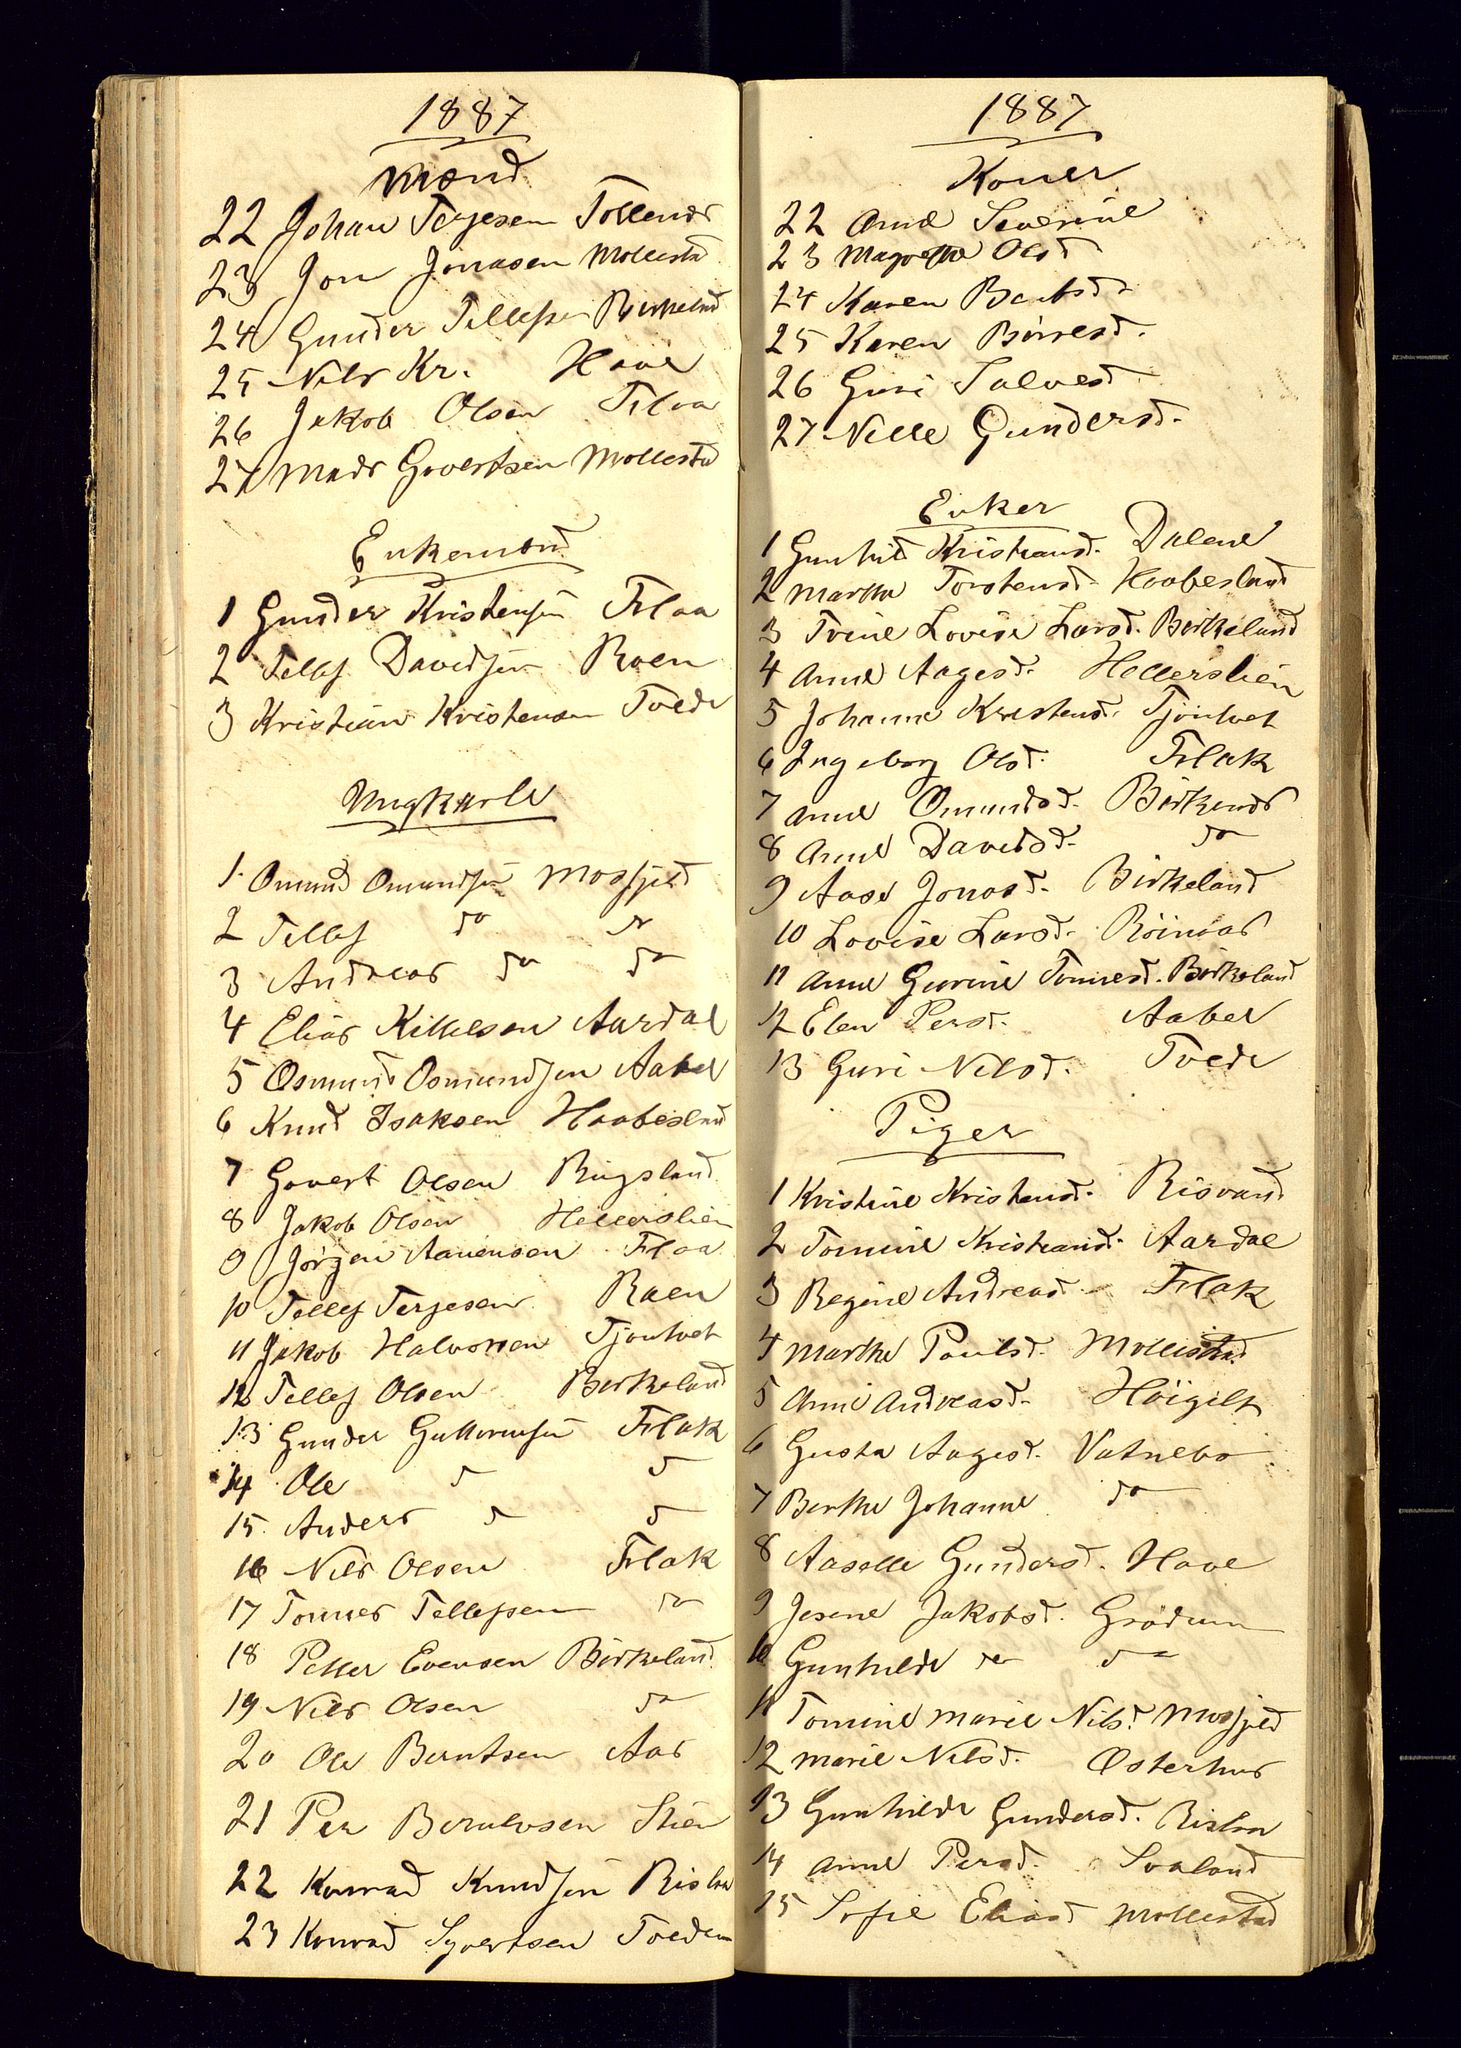 1887
Mænd
22 Johan Terjesen Tollenes
23 Jon Jonasen Mollestad
24 Gunder Tellefsen Birkeland
25 Nils Kr. Have
26 Jakob Olsen Flaa
27 Mads Govertsen Mollestad
Enkemænd
1 Gunder Kristensen Flaa
2 Tellef Davidsen Roen
3 Kristian Kristensen Tvede
Ungkarle
1. Omund Omundsen Mosfjeld
2 Tellef do do
3 Andreas do do
4 Elias Kittelsen Aardal
5 Osmund Osmundsen Aabel
6 Knud Isaksen Haabesland
7 Govert Olsen Rugsland
8 Jakob Olsen Hellerslien
9 Jörgen Aanensen Flaa
10 Tellef Terjesen Roen
11 Jakob Halvorsen Tjonhvet
12 Tellef Olsen Berkeland
13 Gunder Guttormsen Flak
14 Ole d d
15. Anders d d
16 Nils Olsen Flak
17 Tomes Tellefsen do
18 Petter Evensen Birkeland
19 Nils Olsen do
20 Ole Berntsen Aas
21 Per Berulvsen Stien
22 Konrad Knudsen Rislaa
23 Konrad Syvertsen Tveden
1887
Koner
22 Anne Severine
23 Magrethe Olsd
24 Karen Berntsd
25 Karen Börresd.
26 Guri Salvesd
27 Nille Gundersd.
Enker
1 Gunhild Kristiansd. Dalene
2 Marthe Torstensd. Haabesland
3 Trine Lovise Larsd. Birkeland
4 Anne Aagesd. Hellerslien
5 Johanne Kristensd. Tjonhvet
6 Ingeborg Olsd. Flak
7 Anne Omundsd. Birkenes
8 Anne Davidsd. do
9 Aase Jonasd. Birkeland
10 Lovise Larsd. Röinaas
11 Anne Gurine Tomesd. Birkeland
12 Elen Persd. Aabel
13 Guri Nilsd. Tvede
Piger
1 Kristine Kristensd. Risvand
2 Tomine Kristiansd. Aardal
3 Regine Andreasd. Flak
4 Marthe Paulsd. Mollestad
5 Anne Andreasd. Höigilt
6 Gusta Aagesd. Vatnebo
7 Berthe Johanne do
8 Aaselle Gundersd. Have
9 Jesine Jakobsd. Grödum
10 Gunhilde do do
11 Tomine Marie Nilsd. Mosfjeld
12 Marie Nilsd. Østerhus
13 Gunhilde Gundersd. Rislaa
14 Anne Persd. Svaland
15 Sofie Eliasd Mollestad